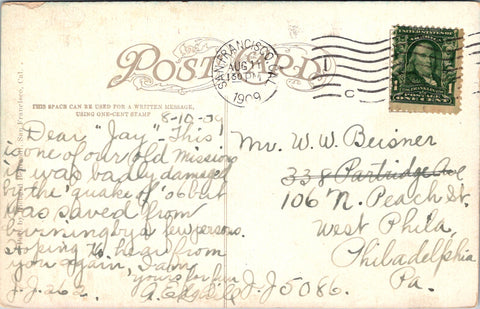 POST CARD
SAN FRANCISCO, CAL.
AUG 11
1 30 PM
1909
THIS SPACE CAN BE USED FOR A WRITTEN MESSAGE,
USING ONE-CENT STAMP
8-10-09
Dear "Jay" This
is one of our old Missions
it was badly damaged
by the "quake" of '06 but
was saved from
burning by a few persons.
Hoping to hear from
you again, I am
yours for fun
J.J. 262.
J.J. 5086.
Mr. W. W. Beisner
338 Partridge Ave
106 N. Peach St.
West Phila,
Philadelphia
Pa.
San Francisco, Cal.
1
ONE CENT